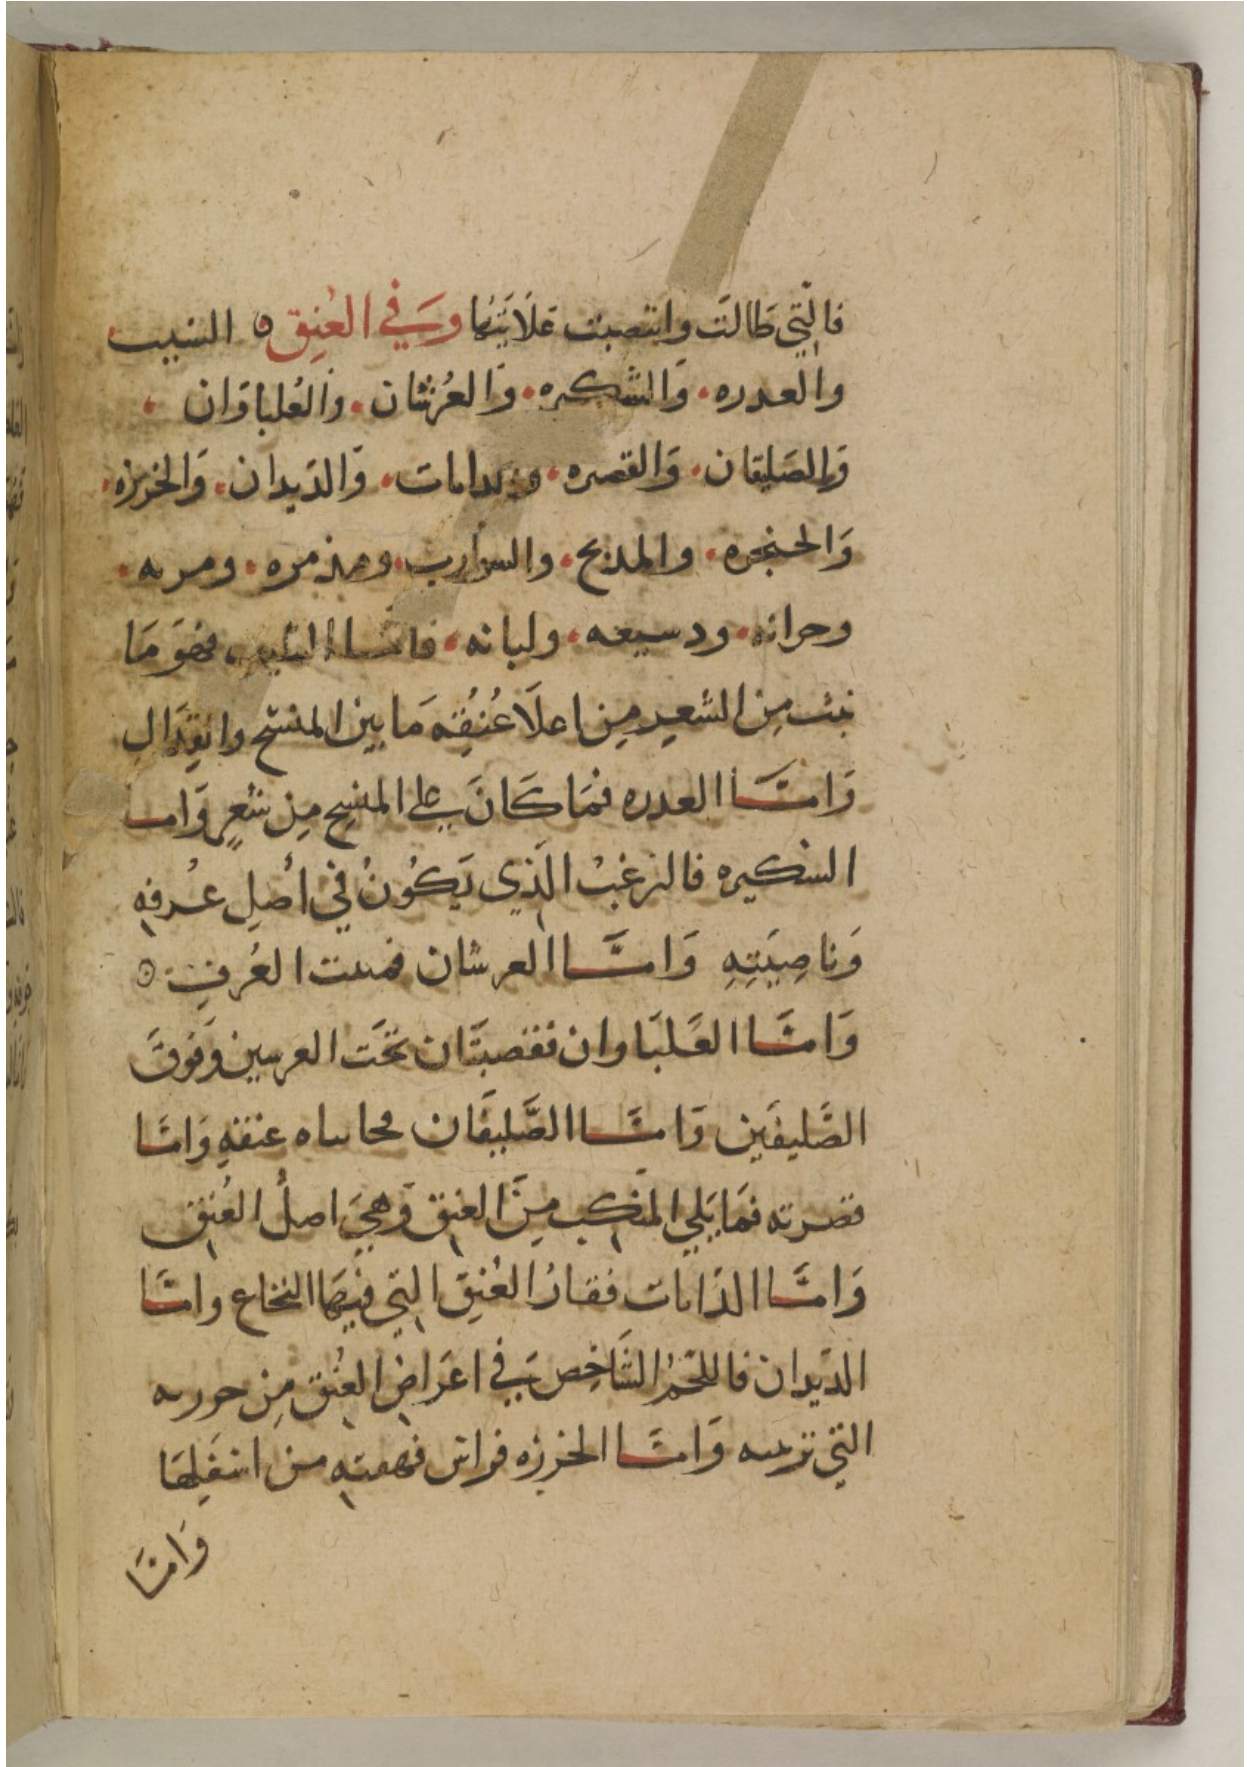 فالتي طالت وانتصبت علايتها وفي العنق ه السبيب
والعدره والشكره والعرشان والعلباوان
والصليقان والقصره والديدان والخرزه
والحنجره والمذبح والسوارب ومذمره ومريه
وجرانه ودسيعه ولبانه فاما السبيب فهو ما
نبت من الشعر من اعلا عنقه ما بين المنسج والقذال
واما العدره فما كان على المنسج من شعر واما
الشكيره فالزغب الذي يكون في اصل عرفه
وناصيته واما العرشان فمنبت العرف ه
واما العلباوان فقصبتان تحت العرسين وفوق
الصليفين واما الصليفان عنقه واما
قصرته فما يلي المنكب من العنق وهي اصل العنق
واما الدايات فقار العنق التي فيها النخاع واما
الديدان فاللحم الشاخص في اعراض العنق من
التي واما الخرزه فراس فهمته من اسفلها
واما